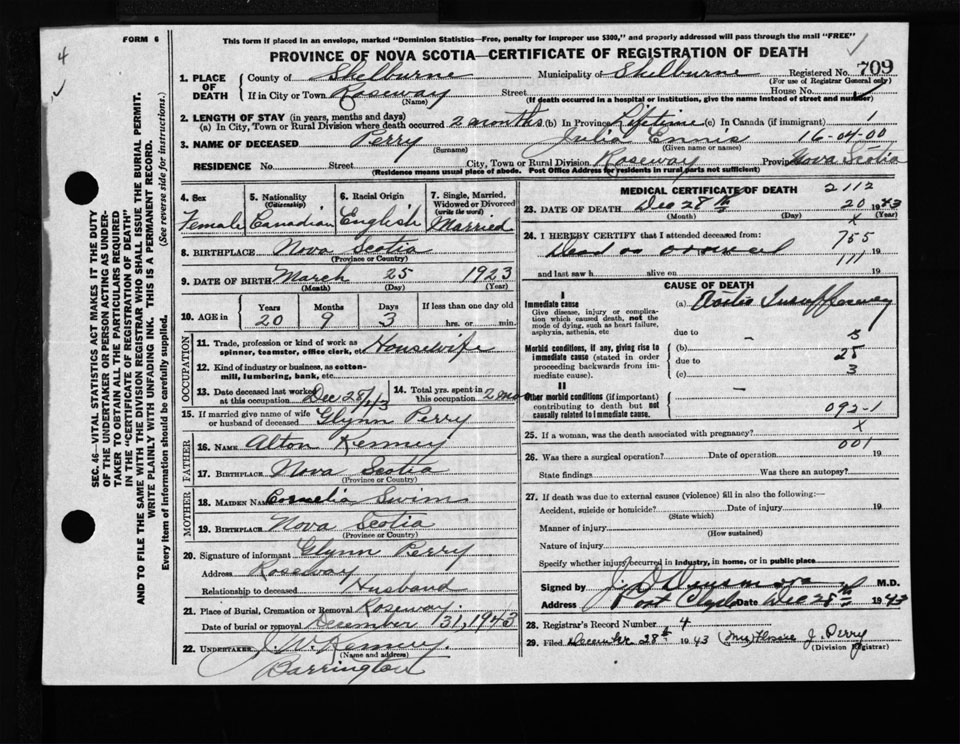 4
FORM 6
This form if placed in an envelope, marked "Dominion Statistics—Free, penalty for improper use $300," and properly addressed will pass through the mail "FREE"
PROVINCE OF NOVA SCOTIA—CERTIFICATE OF REGISTRATION OF DEATH
SEC. 46—VITAL STATISTICS ACT MAKES IT THE DUTY
OF THE UNDERTAKER OR PERSON ACTING AS UNDER-
TAKER TO OBTAIN ALL THE PARTICULARS REQUIRED
IN THE "CERTIFICATE OF REGISTRATION OF DEATH"
AND TO FILE THE SAME WITH THE DIVISION REGISTRAR WHO SHALL ISSUE THE BURIAL PERMIT.
WRITE PLAINLY WITH UNFADING INK. THIS IS A PERMANENT RECORD.
Every item of information should be carefully supplied. (See reverse side for instructions.)
1. PLACE OF DEATH County of Shelburne Municipality of Shelburne Registered No. 709
(For use of Registrar General only)
If in City or Town Roseway Street House No.
(Name) (If death occurred in a hospital or institution, give the name instead of street and number)
2. LENGTH OF STAY (in years, months and days)
(a) In City, Town or Rural Division where death occurred 2 months (b) In Province Lifetime (c) In Canada (if immigrant) 1
3. NAME OF DECEASED Perry Julia Ennis 16-04-00
(Surname) (Given name or names)
RESIDENCE No. Street City, Town or Rural Division Roseway Province Nova Scotia
(Residence means usual place of abode. Post Office Address for residents in rural parts not sufficient)
4. Sex Female
5. Nationality (Citizenship) Canadian
6. Racial Origin English
7. Single, Married, Widowed or Divorced (write the word) Married
8. BIRTHPLACE Nova Scotia
(Province or Country)
9. DATE OF BIRTH March 25 1923
(Month) (Day) (Year)
10. AGE in Years 20 Months 9 Days 3 If less than one day old hrs. or min.
OCCUPATION
11. Trade, profession or kind of work as spinner, teamster, office clerk, etc. Housewife
12. Kind of industry or business, as cotton-mill, lumbering, bank, etc.
13. Date deceased last worked at this occupation Dec 28/43
14. Total yrs. spent in this occupation 2 mo
15. If married give name of wife or husband of deceased Glynn Perry
FATHER
16. NAME Alton Kenney
17. BIRTHPLACE Nova Scotia
(Province or Country)
MOTHER
18. MAIDEN NAME Cornelia Swim
19. BIRTHPLACE Nova Scotia
(Province or Country)
20. Signature of informant Glynn Perry
Address Roseway
Relationship to deceased Husband
21. Place of Burial, Cremation or Removal Roseway.
Date of burial or removal December 31, 1943
22. UNDERTAKER J. W. Kenney.
(Name and address)
Barrington
MEDICAL CERTIFICATE OF DEATH 2112
23. DATE OF DEATH Dec 28th 20 1943
(Month) (Day) x (Year)
24. I HEREBY CERTIFY that I attended deceased from: 755
Dead on arrival 111 19
and last saw h alive on 19
CAUSE OF DEATH
I
Immediate cause (a) Aortic Insufficiency
Give disease, injury or complication which caused death, not the mode of dying, such as heart failure, asphyxia, asthenia, etc
due to 5
Morbid conditions, if any, giving rise to immediate cause (stated in order proceeding backwards from immediate cause). (b) 28
due to
(c) 3
II
Other morbid conditions (if important) contributing to death but not causally related to immediate cause. 092-1
25. If a woman, was the death associated with pregnancy? x
001
26. Was there a surgical operation? Date of operation 19
State findings Was there an autopsy?
27. If death was due to external causes (violence) fill in also the following:—
Accident, suicide or homicide? Date of injury 19
(State which)
Manner of injury
(How sustained)
Nature of injury
Specify whether injury occurred in industry, in home, or in public place
Signed by J. D. Densmore M.D.
Address Port Clyde Date Dec 28th 1943
28. Registrar's Record Number 4
29. Filed December 28th 1943 (Mrs) Florence J. Perry
(Division Registrar)